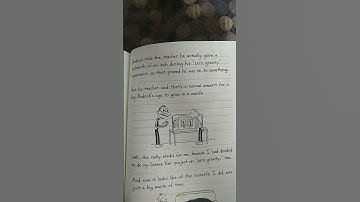 Rodrick told the teacher he actually grew a
sixteenth of an inch during his "zero gravity"
experiment, so that proved he was on to something.
But his teacher said that's a normal amount for a
boy Rodrick's age to grow in a month.
Well, this really stinks for me, because I had decided
to do my Science Fair project on "zero gravity," too.
And now it looks like all the research I did was
just a big waste of time.